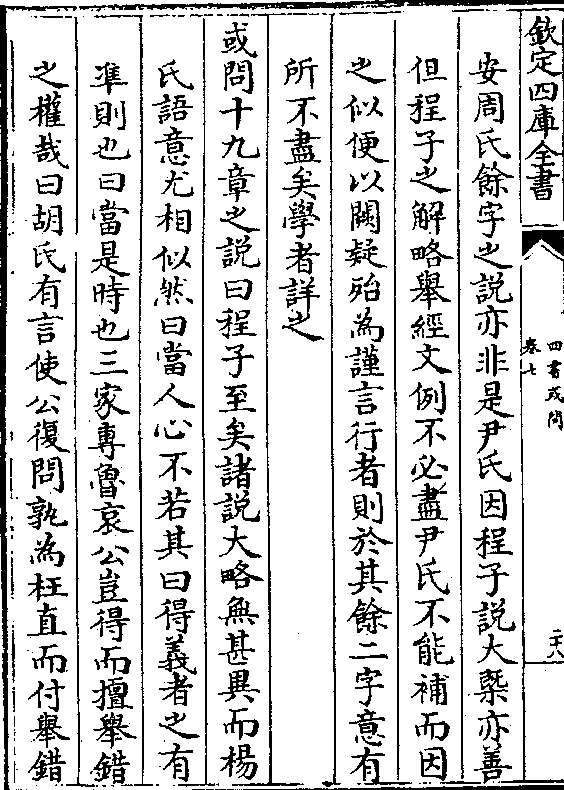 欽定四庫全書
四書或問
卷七
二十八
安周氏餘字之說亦非是尹氏因程子說大槩亦善
但程子之解略舉經文例不必盡尹氏不能補而因
之似便以闕疑殆為謹言行者則於其餘二字意有
所不盡矣學者詳之
或問十九章之說曰程子至矣諸說大略無甚異而楊
氏語意尤相似然曰當人心不若其曰得義者之有
準則也曰當是時也三家專魯哀公豈得而擅舉錯
之權哉曰胡氏有言使公復問孰為枉直而付舉錯